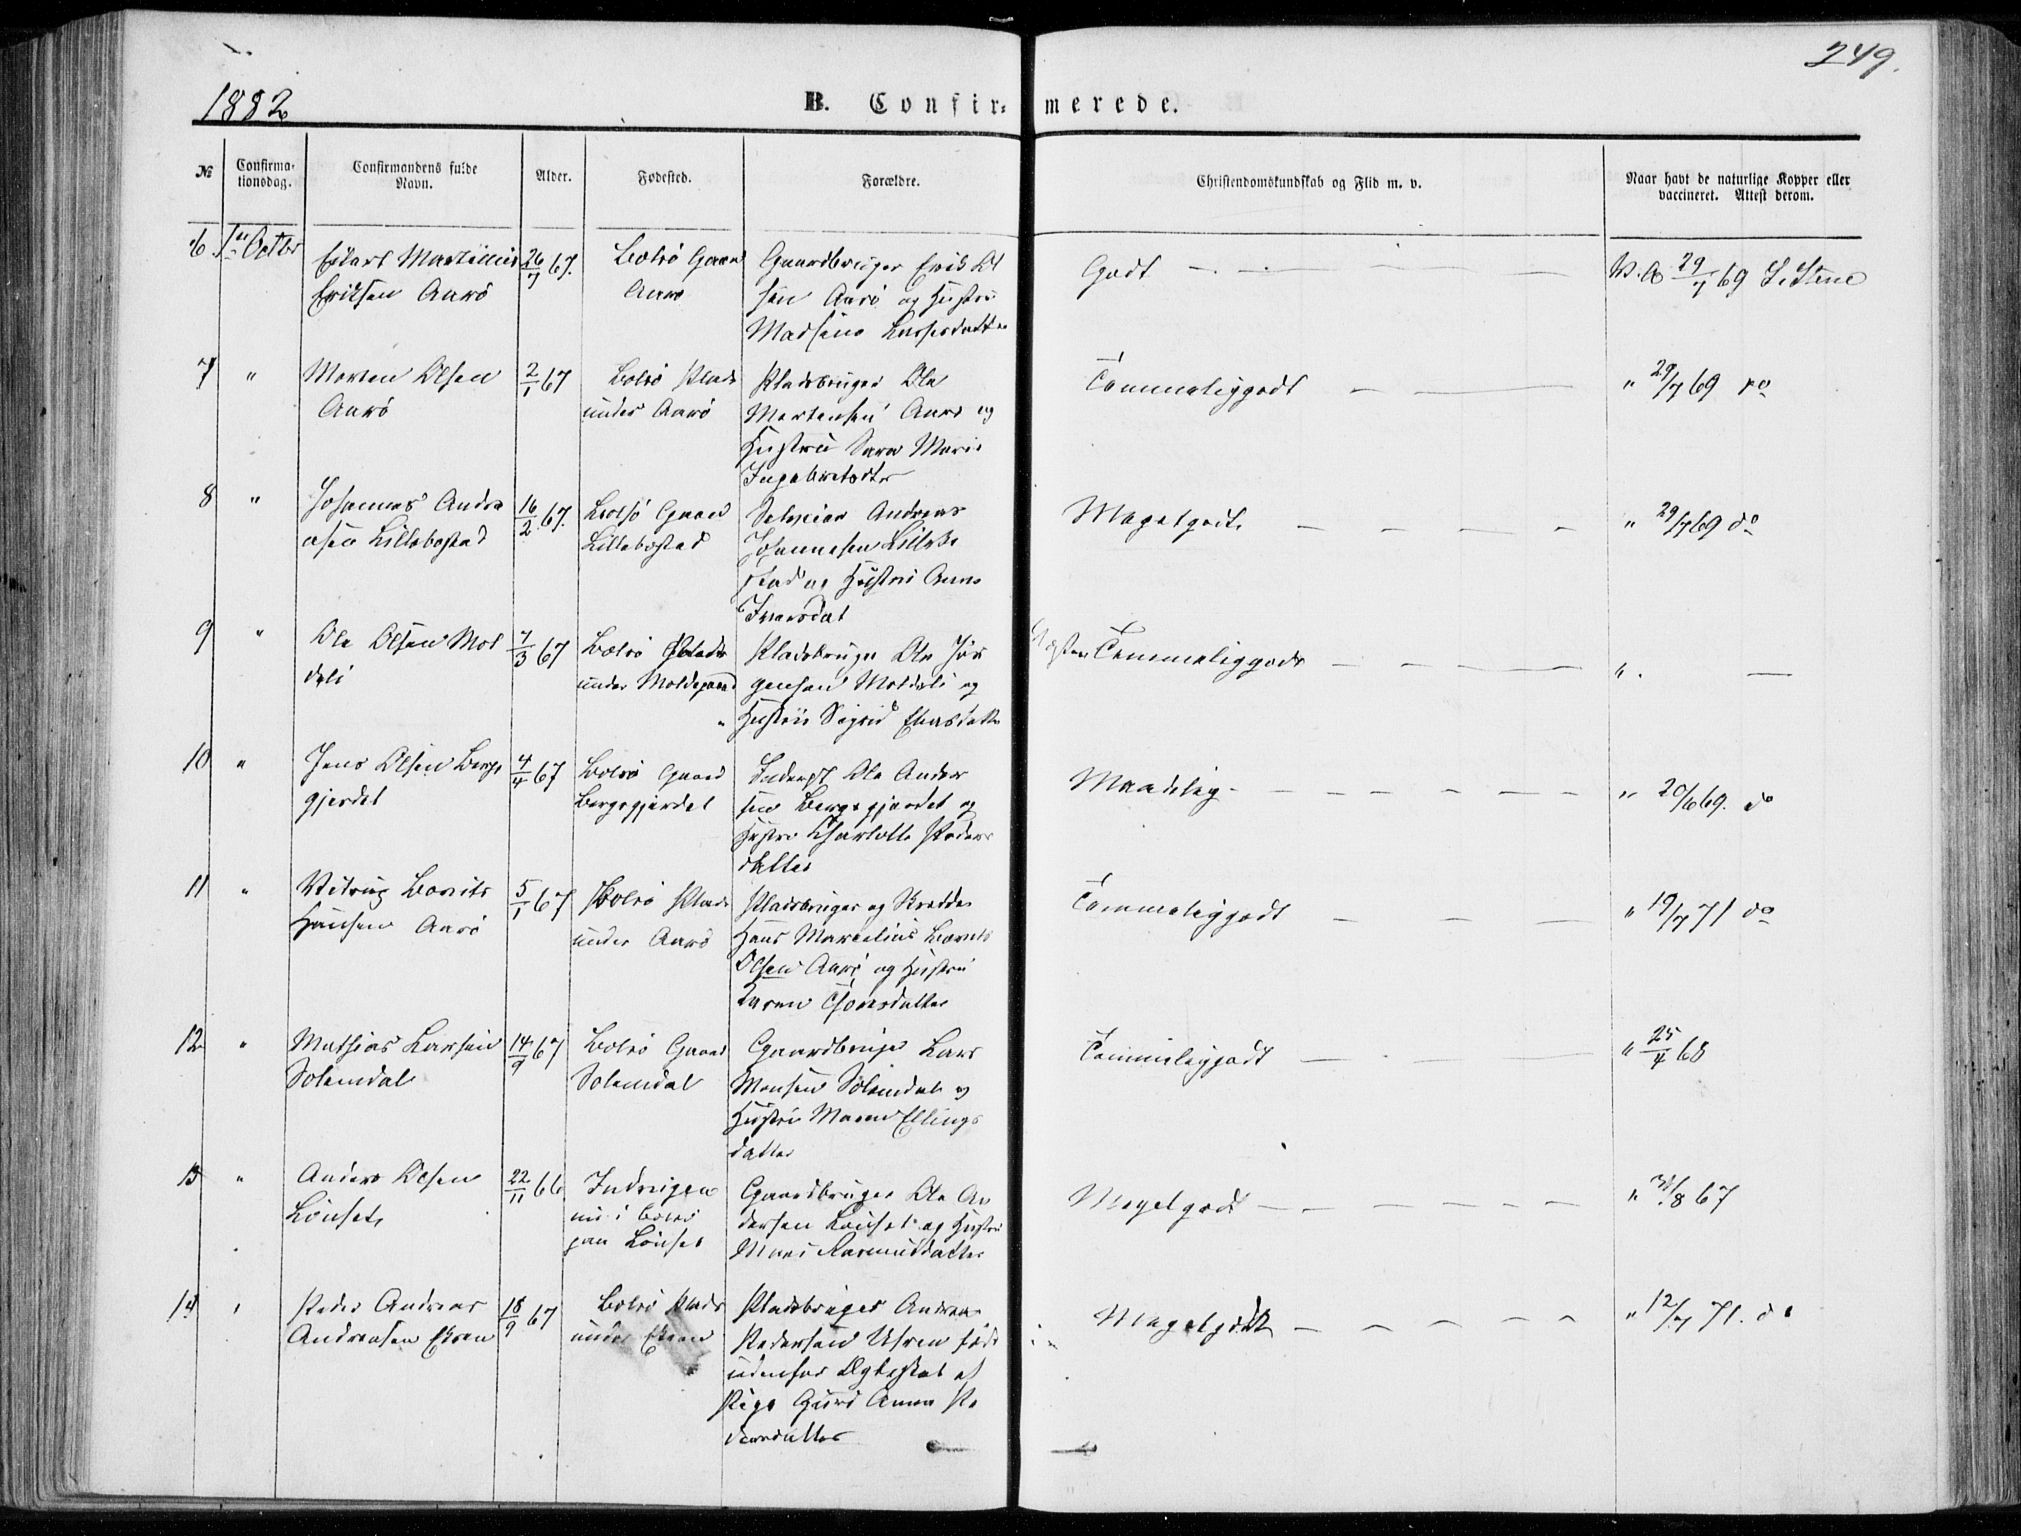 249.
1882
B. Confirmerede.
№
Confirmationsdag.
Confirmandens fulde Navn.
Alder.
Fødested.
Forældre.
Christendomskundskab og Flid m. v.
Naar havt de naturlige Kopper eller vaccineret. Attest derom.
6. 1ste Octbr
Martinus
Eriksen Aarø
26/7 67.
Bolsø Gaard
Aarø
Gaardbruger Erik Ol
sen Aarø og Hustru
Madsine Lassesdatter
Godt
29/7 69
7 "
Morten Olsen
Aarø
2/1 67
Bolsø Plads
under Aarø
Pladsbruger Ole
Mortensen Aarø og
Hustru Sara Marie
Ingebretsdtr
Temmeliggodt
" 29/7 69 do
8 "
Johannes Andre
asen Lillebostad
16/2 67.
Bolsø Gaard
Lillebostad
Andreas
Johannesen Lillebo
stad og Hustru Anne
Iversdat
Megetgodt
" 29/7 69 do
9 "
Ole Olsen Mol
deli
7/3 67
Bolsø Plads
under Moldegaard
Pladsbruger Ole Jør
gensen Moldeli og
Hustru Sigrid
Næsten Temmeliggodt
".
10 "
Jens Olsen Bergs
gjerdet
4/4 67
Bolsø Gaard
Bergsgjerdet
Inderst Ole Ander
sen Bergsgjerdet og
Hustru Charlotte Peders
datter
Maadelig
" 20/6 69. do
11 "
Bernts
Hansen Aarø
5/1 67
Bolsø Plads
under Aarø
Pladsbruger og Skrædder
Hans Marcelius Bernts
Olsen Aarø og Hustru
Karen Thomsdatter
Temmeliggodt
" 19/7 71 do
12 "
Mathias Larsen
Solemdal
14/9 67
Bolsø Gaard
Solemdal
Gaardbruger Lars
Monsen Solemdal og
Hustru Maren Ellings
datter
Temmeliggodt
" 25/4 68
13 "
Anders Olsen
Lønset
22/11 66
nu i Bolsø
paa Lønset
Gaardbruger Ole An
dersen Lønset og Hustru
Mari Rasmusdatter
Megetgodt
8 67
14 "
Peder Andreas
Andreasen Ekren
18/9 67
Bolsø Plads
under Ekren
Pladsbruger Andreas
Pedersen født
udenfor Ægteskab af
Pige Guri Anna Pe
dersdatter
Megetgodt
" 12/7 71. do